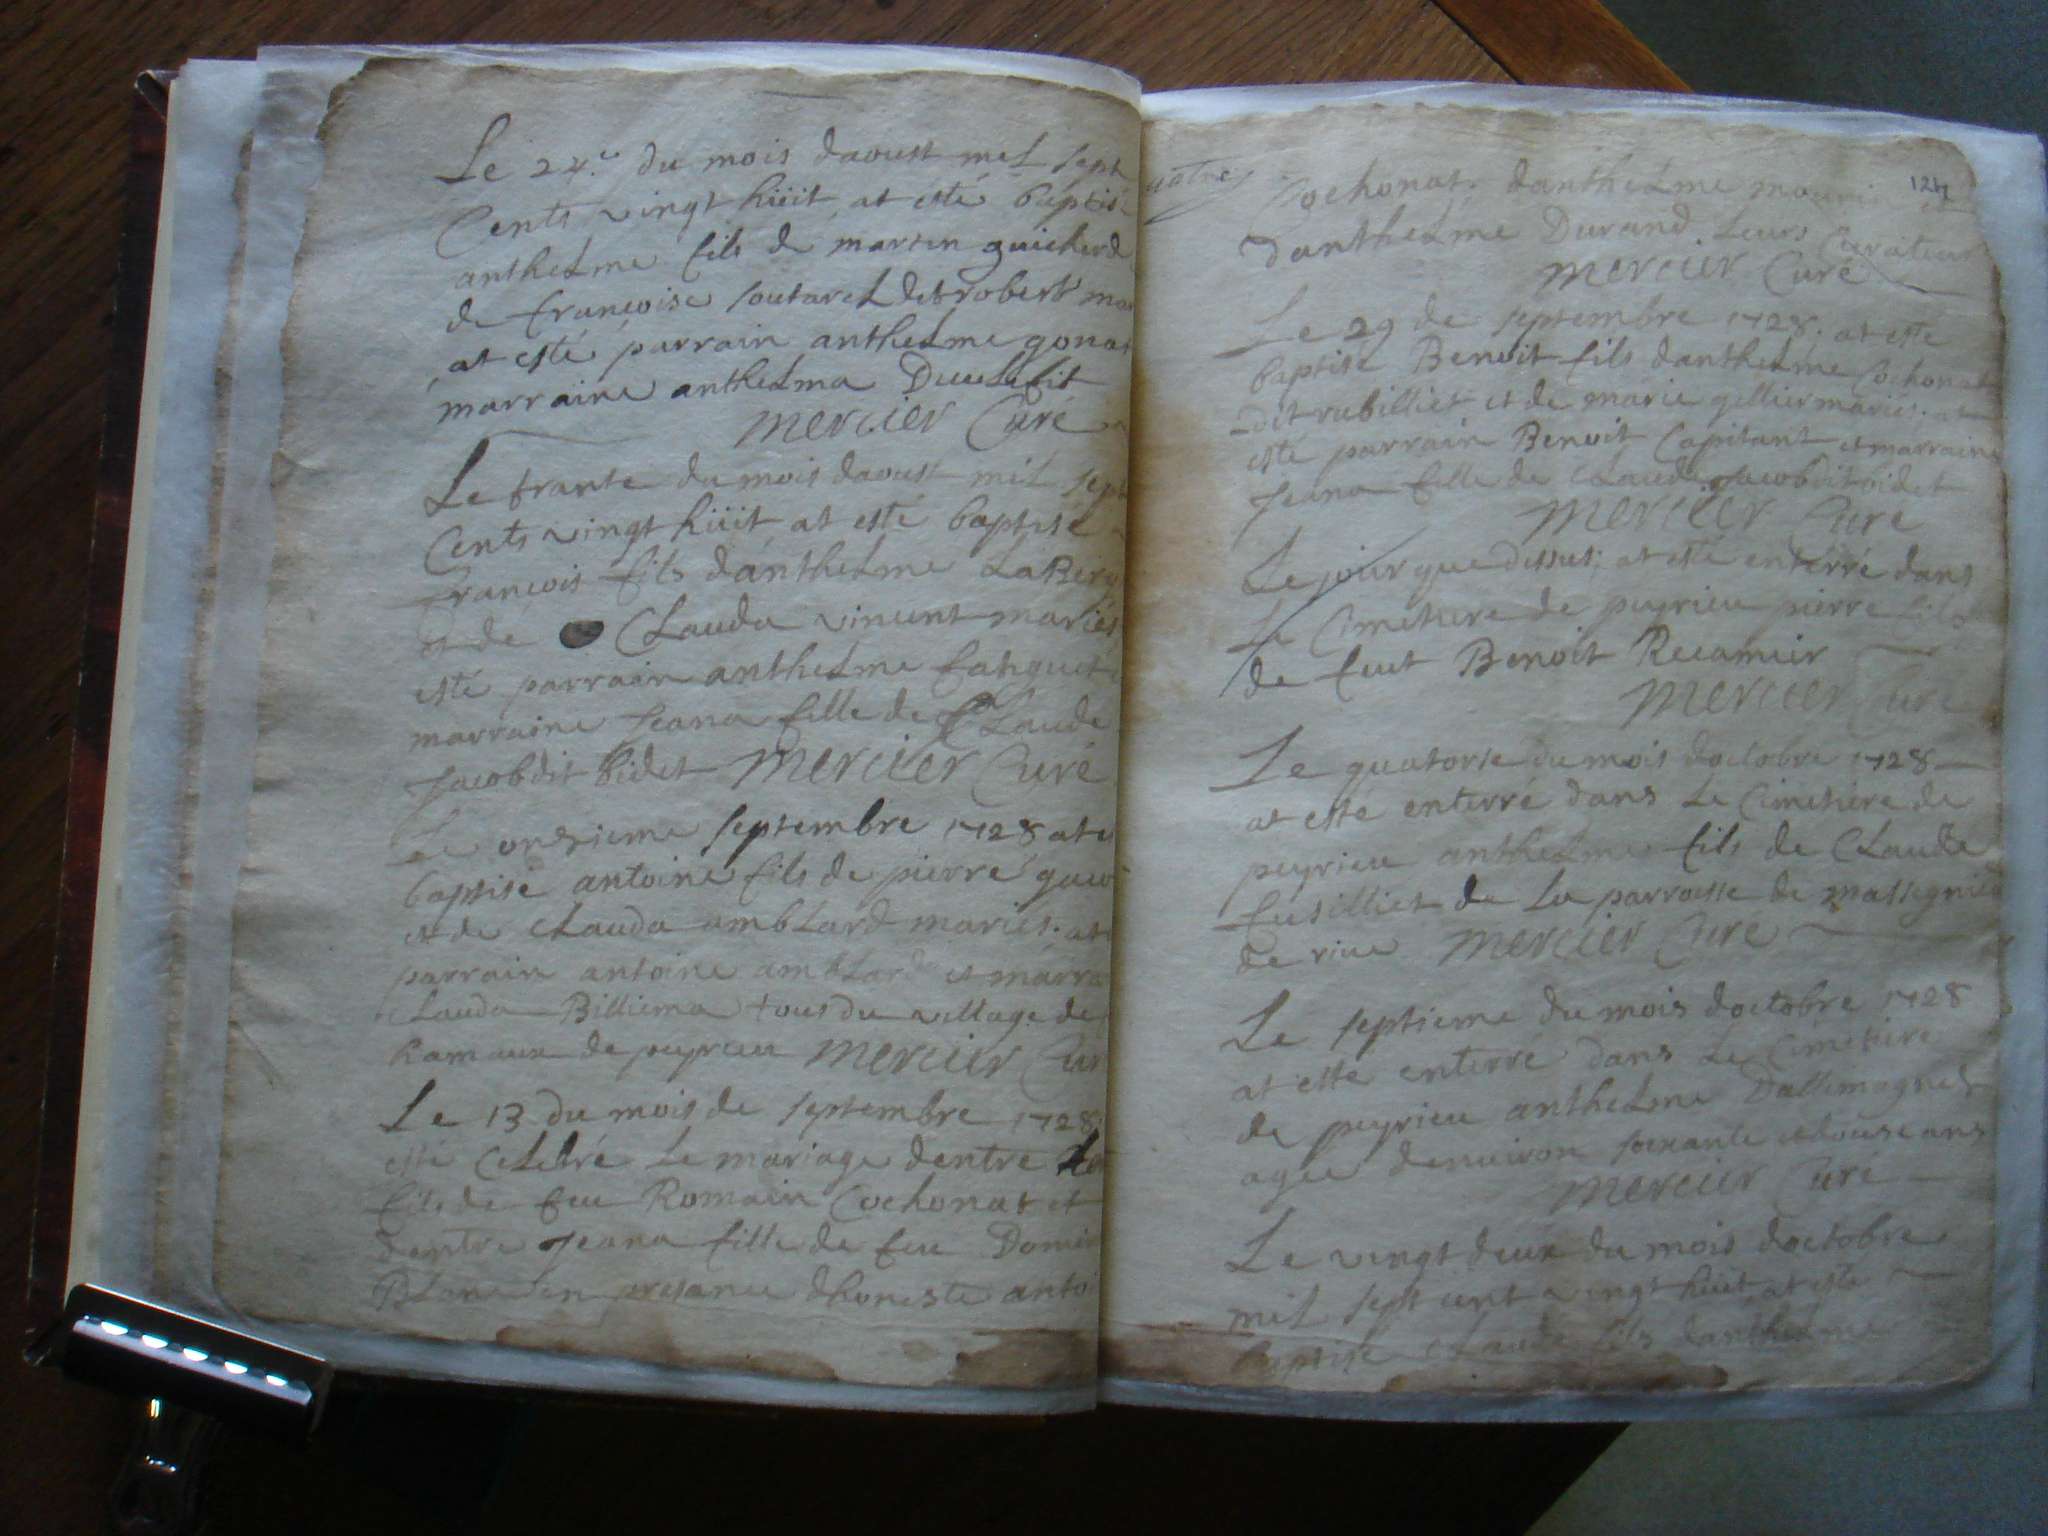 Le 24.e du mois daoust mil sept
Cents vingt hüit at esté baptisé
anthelme fils de martin guicherd
de francoise soutarel dit robert
at esté parrain anthelme
marraine anthelma
Mercier Curé
Le trante du mois daoust mil sept
Cents vingt hüit at esté baptisé
francois fils danthelme LaBer
et de Clauda vincent mariés
esté parrain anthelme fanguet
marraine Jeana fille de Claude
Jacob dit bidet Mercier Curé
Le onzieme septembre 1728 at e
baptisé antoine fils de pierre
et de Clauda amblard mariés. at
parrain antoine amblard et marra
Clauda Billiema tous du village de
hamaux de peyrieu Mercier Cur
Le 13 du mois de septembre 1728.
esté Celebré Le mariage dentre
fils de feu Romain Cochonat et
dentre Jeana fille de feu Domi
Blanc en presance dhoneste anto
124
Cochonat. danthelme et
danthelme Durand Leurs Curateur
Mercier Curé
Le 29 de septembre 1728. at esté
baptisé Benoit fils danthelme Cochonat
dit rubilliet et de marie gillier mariés. at
esté parrain Benoit Capitant et marraine
Jeana fille de Claude Jacob dit bidet
Mercier Curé
Le jour que dessus: at esté enterré dans
Le Cimetiere de peyrieu pierre fils
de feut Benoit Recamier
Mercier Curé
Le quatorse du mois doctobre 1728
at esté enterré dans Le Cimetiere de
peyrieu anthelme fils de Claude
fusilliet de La parroisse de massignieu
de rive Mercier Curé
Le septieme du mois doctobre 1728
at esté enterré dans Le Cimetiere
de peyrieu anthelme Dallemagne
agée denviron soixante et douse ans
Mercier Curé
Le vingt deux du mois doctobre
mil sept cent vingt hüit at esté
baptisé Claude fils danthelme